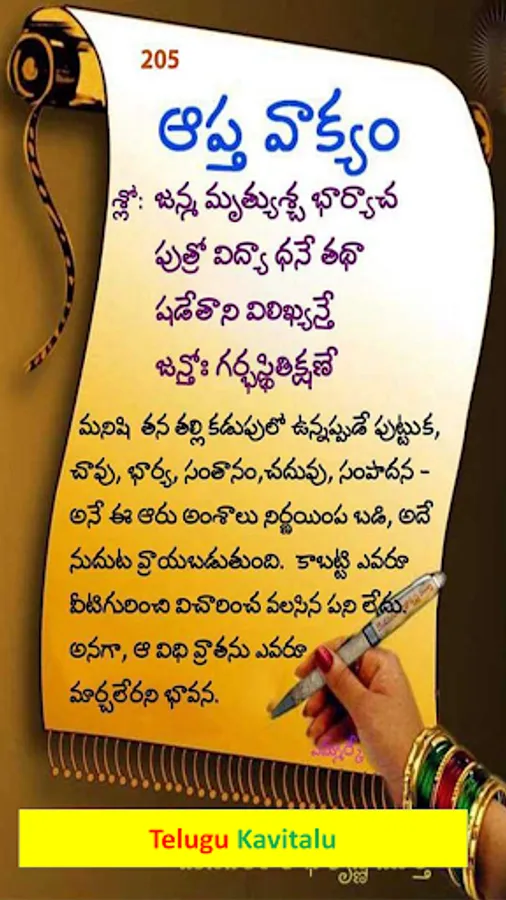 205
ఆప్త వాక్యం
శ్లో: జన్మ మృత్యుశ్చ భార్యాచ
పుత్రో విద్యా ధనే తథా
షడేతాని విలిఖ్యన్తే
జన్తోః గర్భస్థితిక్షణే
మనిషి తన తల్లి కడుపులో ఉన్నప్పుడే పుట్టుక,
చావు, భార్య, సంతానం,చదువు, సంపాదన -
అనే ఈ ఆరు అంశాలు నిర్ణయింప బడి, అదే
నుదుట వ్రాయబడుతుంది. కాబట్టి ఎవరూ
వీటిగురించి విచారించ వలసిన పని లేదు.
అనగా, ఆ విధి వ్రాతను ఎవరూ
మార్చలేరని భావన.
Telugu Kavitalu